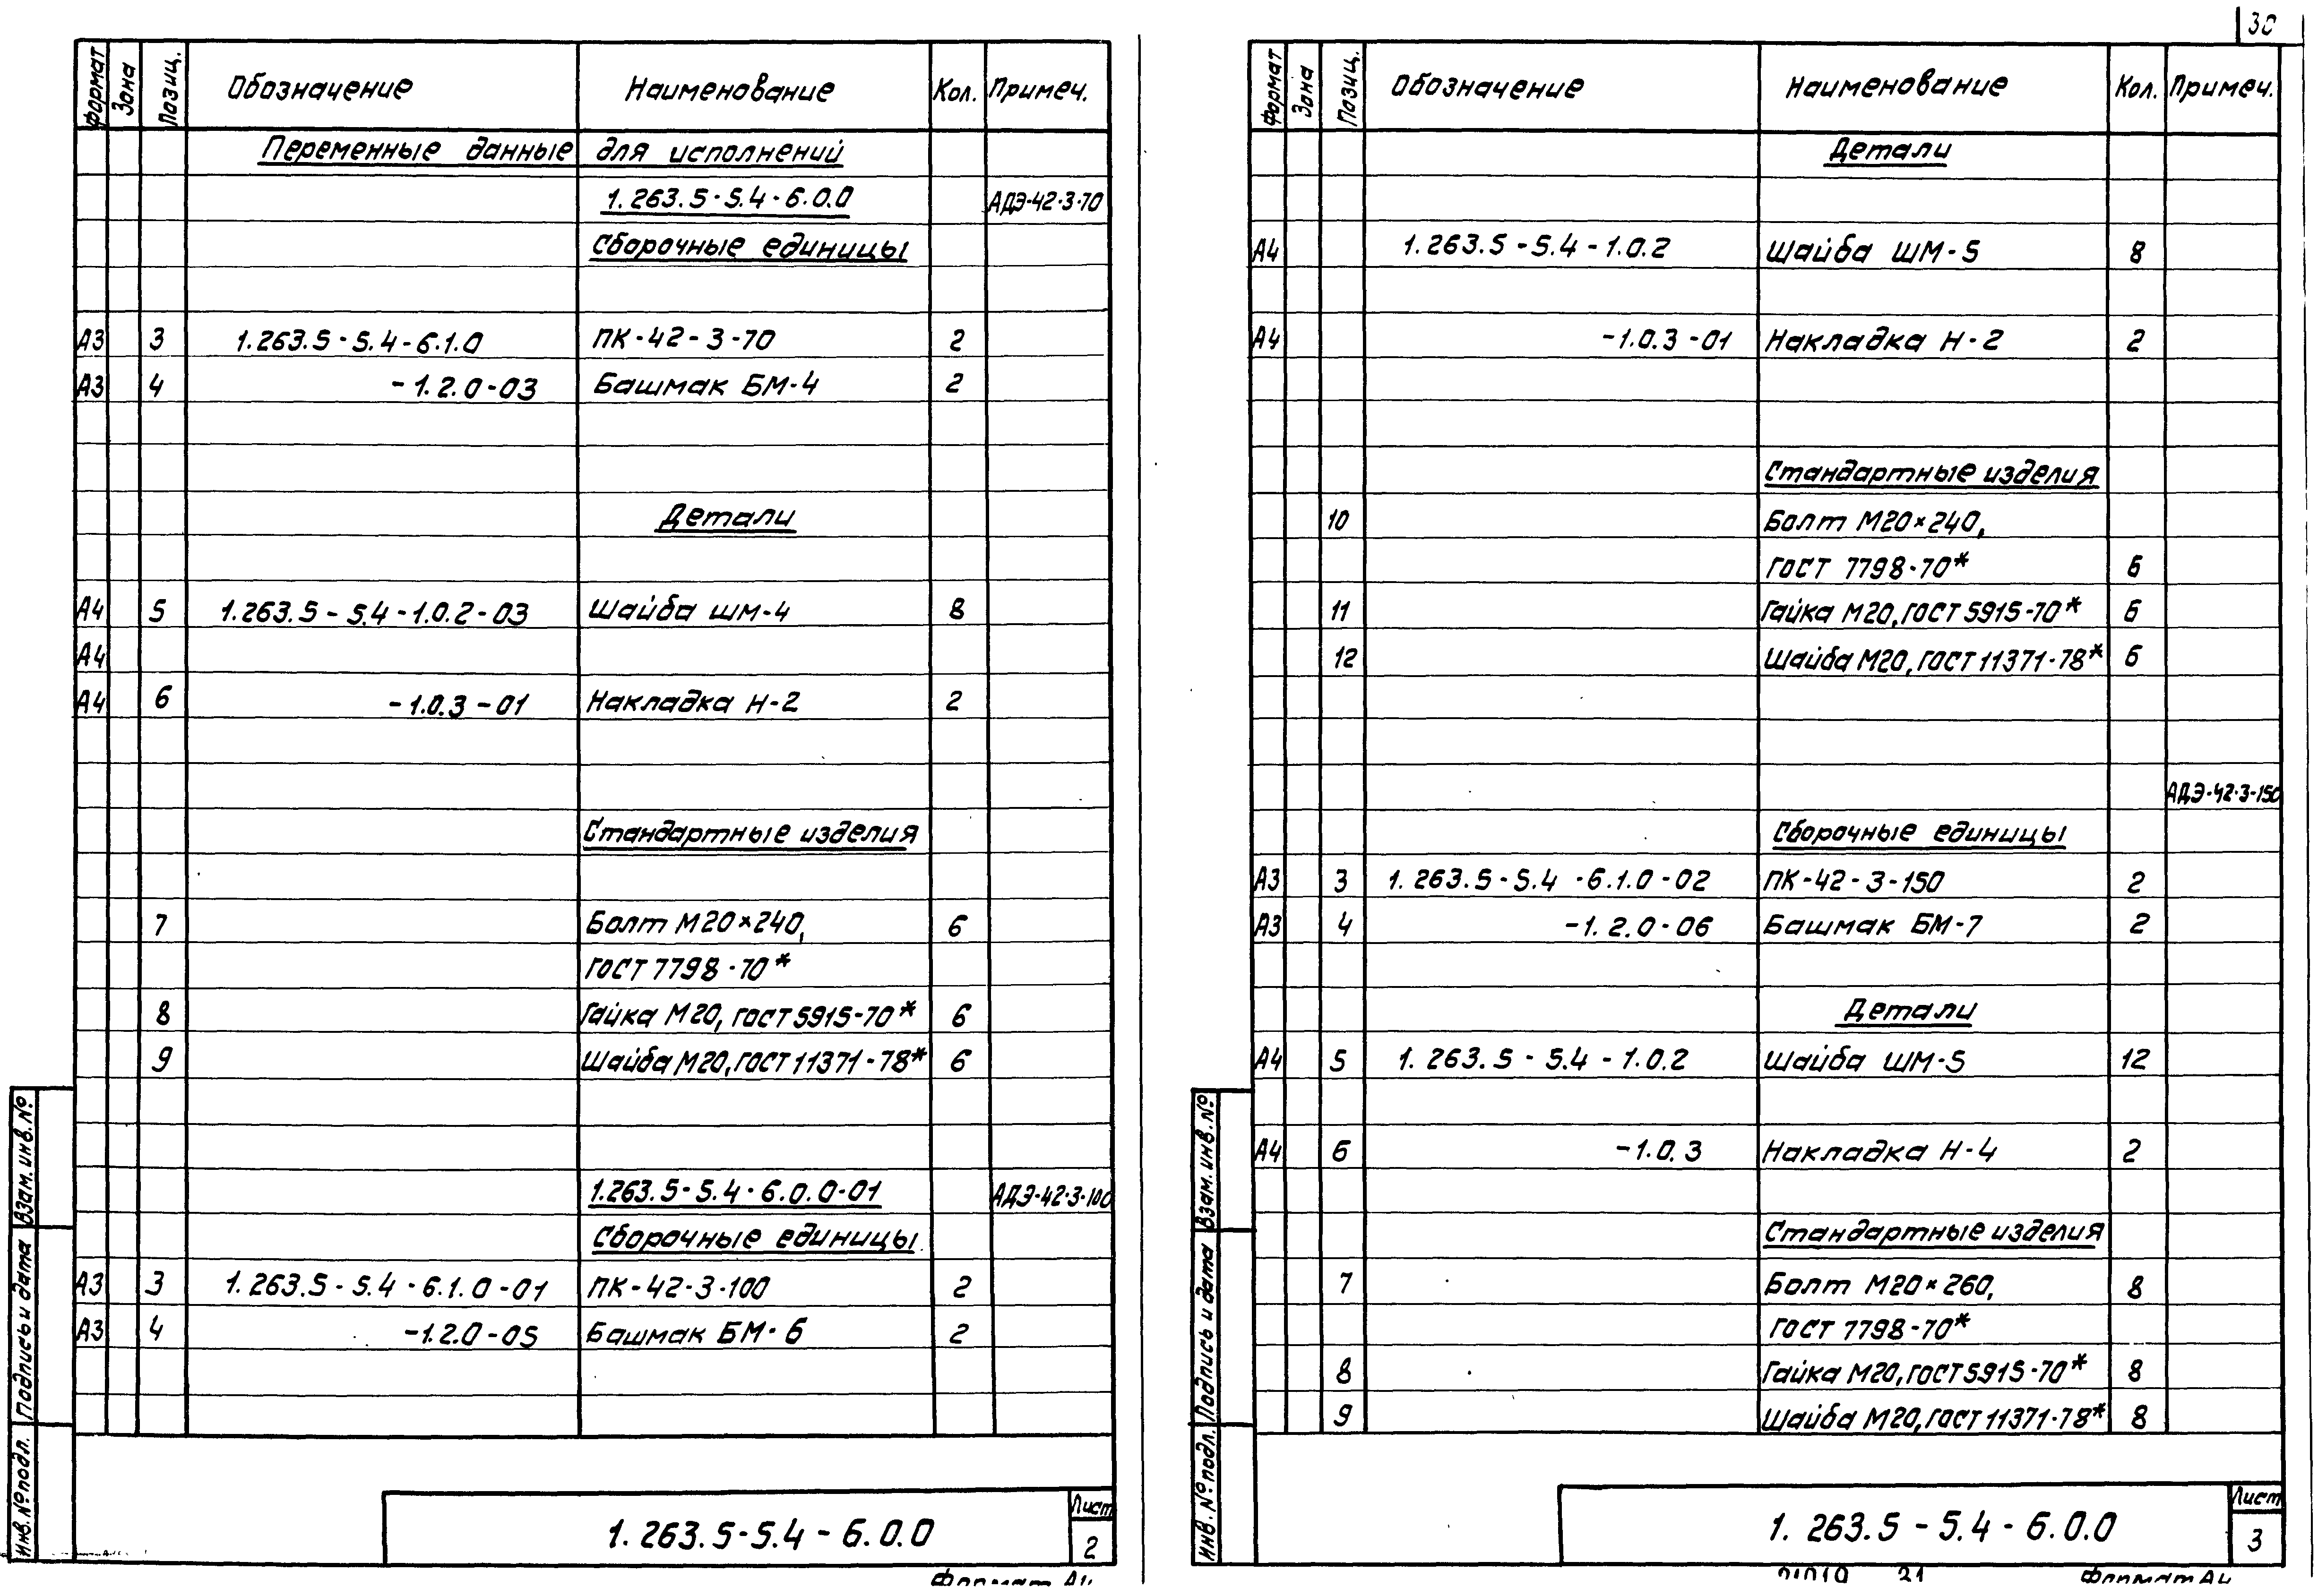 30
Формат Зона Позиц. Обозначение Наименование Кол. Примеч.
Переменные данные для исполнений
1.263.5-5.4-6.0.0 АДЭ-42-3-70
Сборочные единицы
А3 3 1.263.5-5.4-6.1.0 ПК-42-3-70 2
А3 4 -1.2.0-03 Башмак БМ-4 2
Детали
А4 5 1.263.5-5.4-1.0.2-03 Шайба ШМ-4 8
А4
А4 6 -1.0.3-01 Накладка Н-2 2
Стандартные изделия
7 Болт М20×240, 6
ГОСТ 7798-70*
8 Гайка М20, ГОСТ 5915-70* 6
9 Шайба М20, ГОСТ 11371-78* 6
1.263.5-5.4-6.0.0-01 АДЭ-42-3-100
Сборочные единицы
А3 3 1.263.5-5.4-6.1.0-01 ПК-42-3-100 2
А3 4 -1.2.0-05 Башмак БМ-6 2
Инв. № подл. Подпись и дата Взам. инв. №
1.263.5-5.4-6.0.0
Лист
2
Формат А4
Формат Зона Позиц. Обозначение Наименование Кол. Примеч.
Детали
А4 1.263.5-5.4-1.0.2 Шайба ШМ-5 8
А4 -1.0.3-01 Накладка Н-2 2
Стандартные изделия
10 Болт М20×240,
ГОСТ 7798-70* 6
11 Гайка М20, ГОСТ 5915-70* 6
12 Шайба М20, ГОСТ 11371-78* 6
АДЭ-42-3-150
Сборочные единицы
А3 3 1.263.5-5.4-6.1.0-02 ПК-42-3-150 2
А3 4 -1.2.0-06 Башмак БМ-7 2
Детали
А4 5 1.263.5-5.4-1.0.2 Шайба ШМ-5 12
А4 6 -1.0.3 Накладка Н-4 2
Стандартные изделия
7 Болт М20×260, 8
ГОСТ 7798-70*
8 Гайка М20, ГОСТ 5915-70* 8
9 Шайба М20, ГОСТ 11371-78* 8
Инв. № подл. Подпись и дата Взам. инв. №
1.263.5-5.4-6.0.0
Лист
3
21019 31 Формат А4